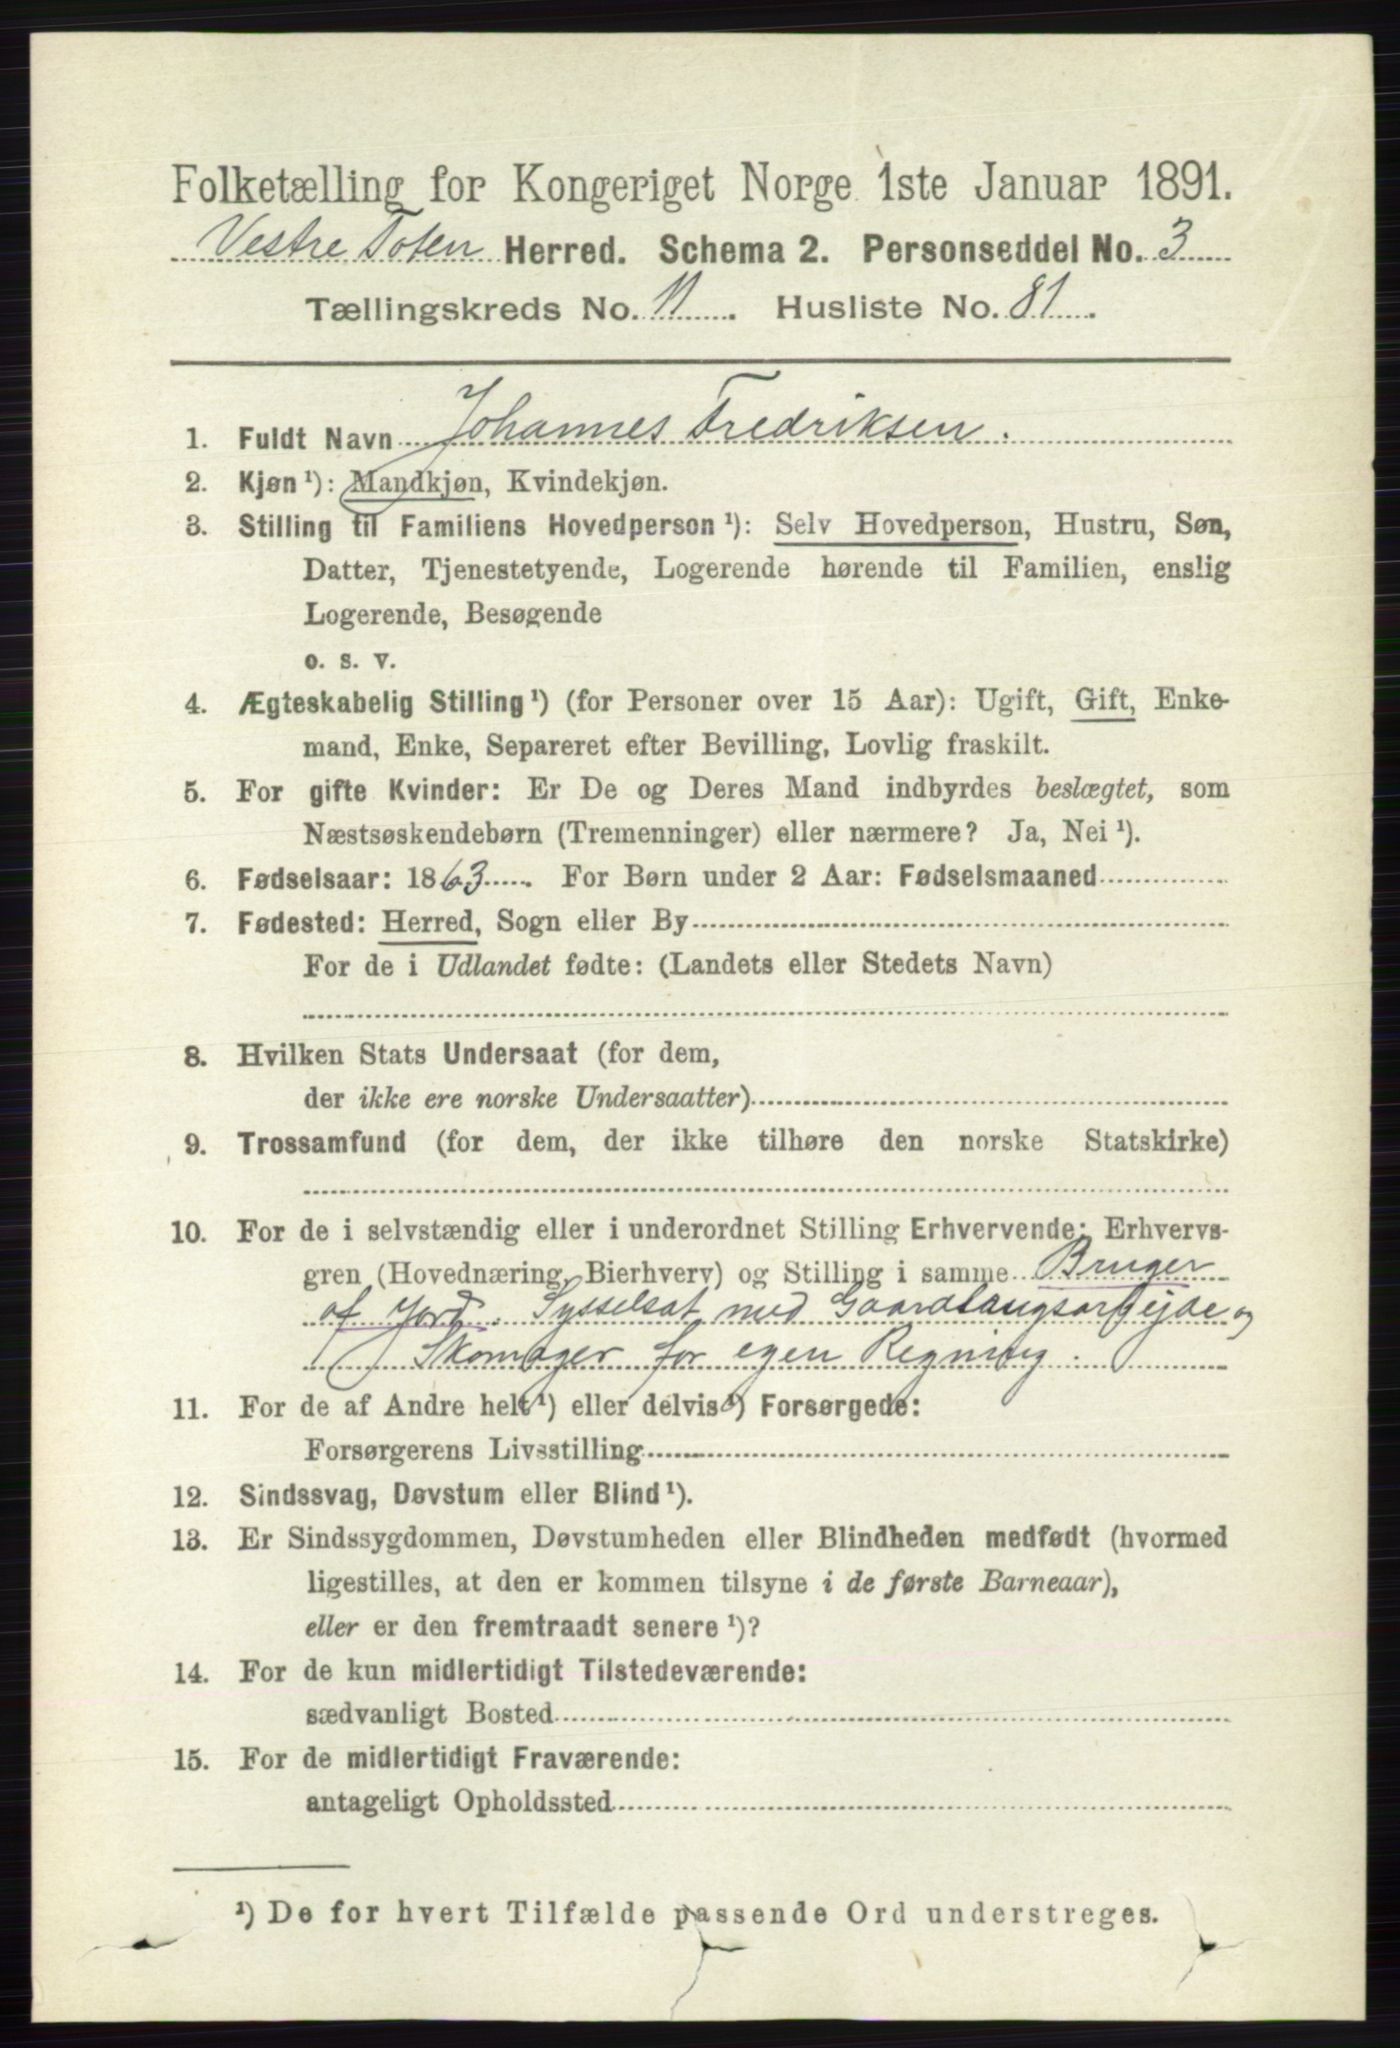 Folketælling for Kongeriget Norge 1ste Januar 1891.
Vestre Toten Herred. Schema 2. Personseddel No. 3
Tællingskreds No. 11. Husliste No. 81.
1. Fuldt Navn Johannes Fredriksen.
2. Kjøn ¹): Mandkjøn, Kvindekjøn.
3. Stilling til Familiens Hovedperson ¹): Selv Hovedperson, Hustru, Søn,
Datter, Tjenestetyende, Logerende hørende til Familien, enslig
Logerende, Besøgende
o. s. v.
4. Ægteskabelig Stilling ¹) (for Personer over 15 Aar): Ugift, Gift, Enke-
mand, Enke, Separeret efter Bevilling, Lovlig fraskilt.
5. For gifte Kvinder: Er De og Deres Mand indbyrdes beslægtet, som
Næstsøskendebørn (Tremenninger) eller nærmere? Ja, Nei ¹).
6. Fødselsaar: 1863. For Børn under 2 Aar: Fødselsmaaned
7. Fødested: Herred, Sogn eller By
For de i Udlandet fødte: (Landets eller Stedets Navn)
8. Hvilken Stats Undersaat (for dem,
der ikke ere norske Undersaatter)
9. Trossamfund (for dem, der ikke tilhøre den norske Statskirke)
10. For de i selvstændig eller i underordnet Stilling Erhvervende: Erhvervs-
gren (Hovednæring, Bierhverv) og Stilling i samme Bruger
af Jord. Sysselsat med Gaardsangsarbejde og
Skomager for egen Regning.
11. For de af Andre helt ¹) eller delvis ¹) Forsørgede:
Forsørgerens Livsstilling
12. Sindssvag, Døvstum eller Blind ¹).
13. Er Sindssygdommen, Døvstumheden eller Blindheden medfødt (hvormed
ligestilles, at den er kommen tilsyne i de første Barneaar),
eller er den fremtraadt senere ¹)?
14. For de kun midlertidigt Tilstedeværende:
sædvanligt Bosted
15. For de midlertidigt Fraværende:
antageligt Opholdssted
¹) De for hvert Tilfælde passende Ord understreges.